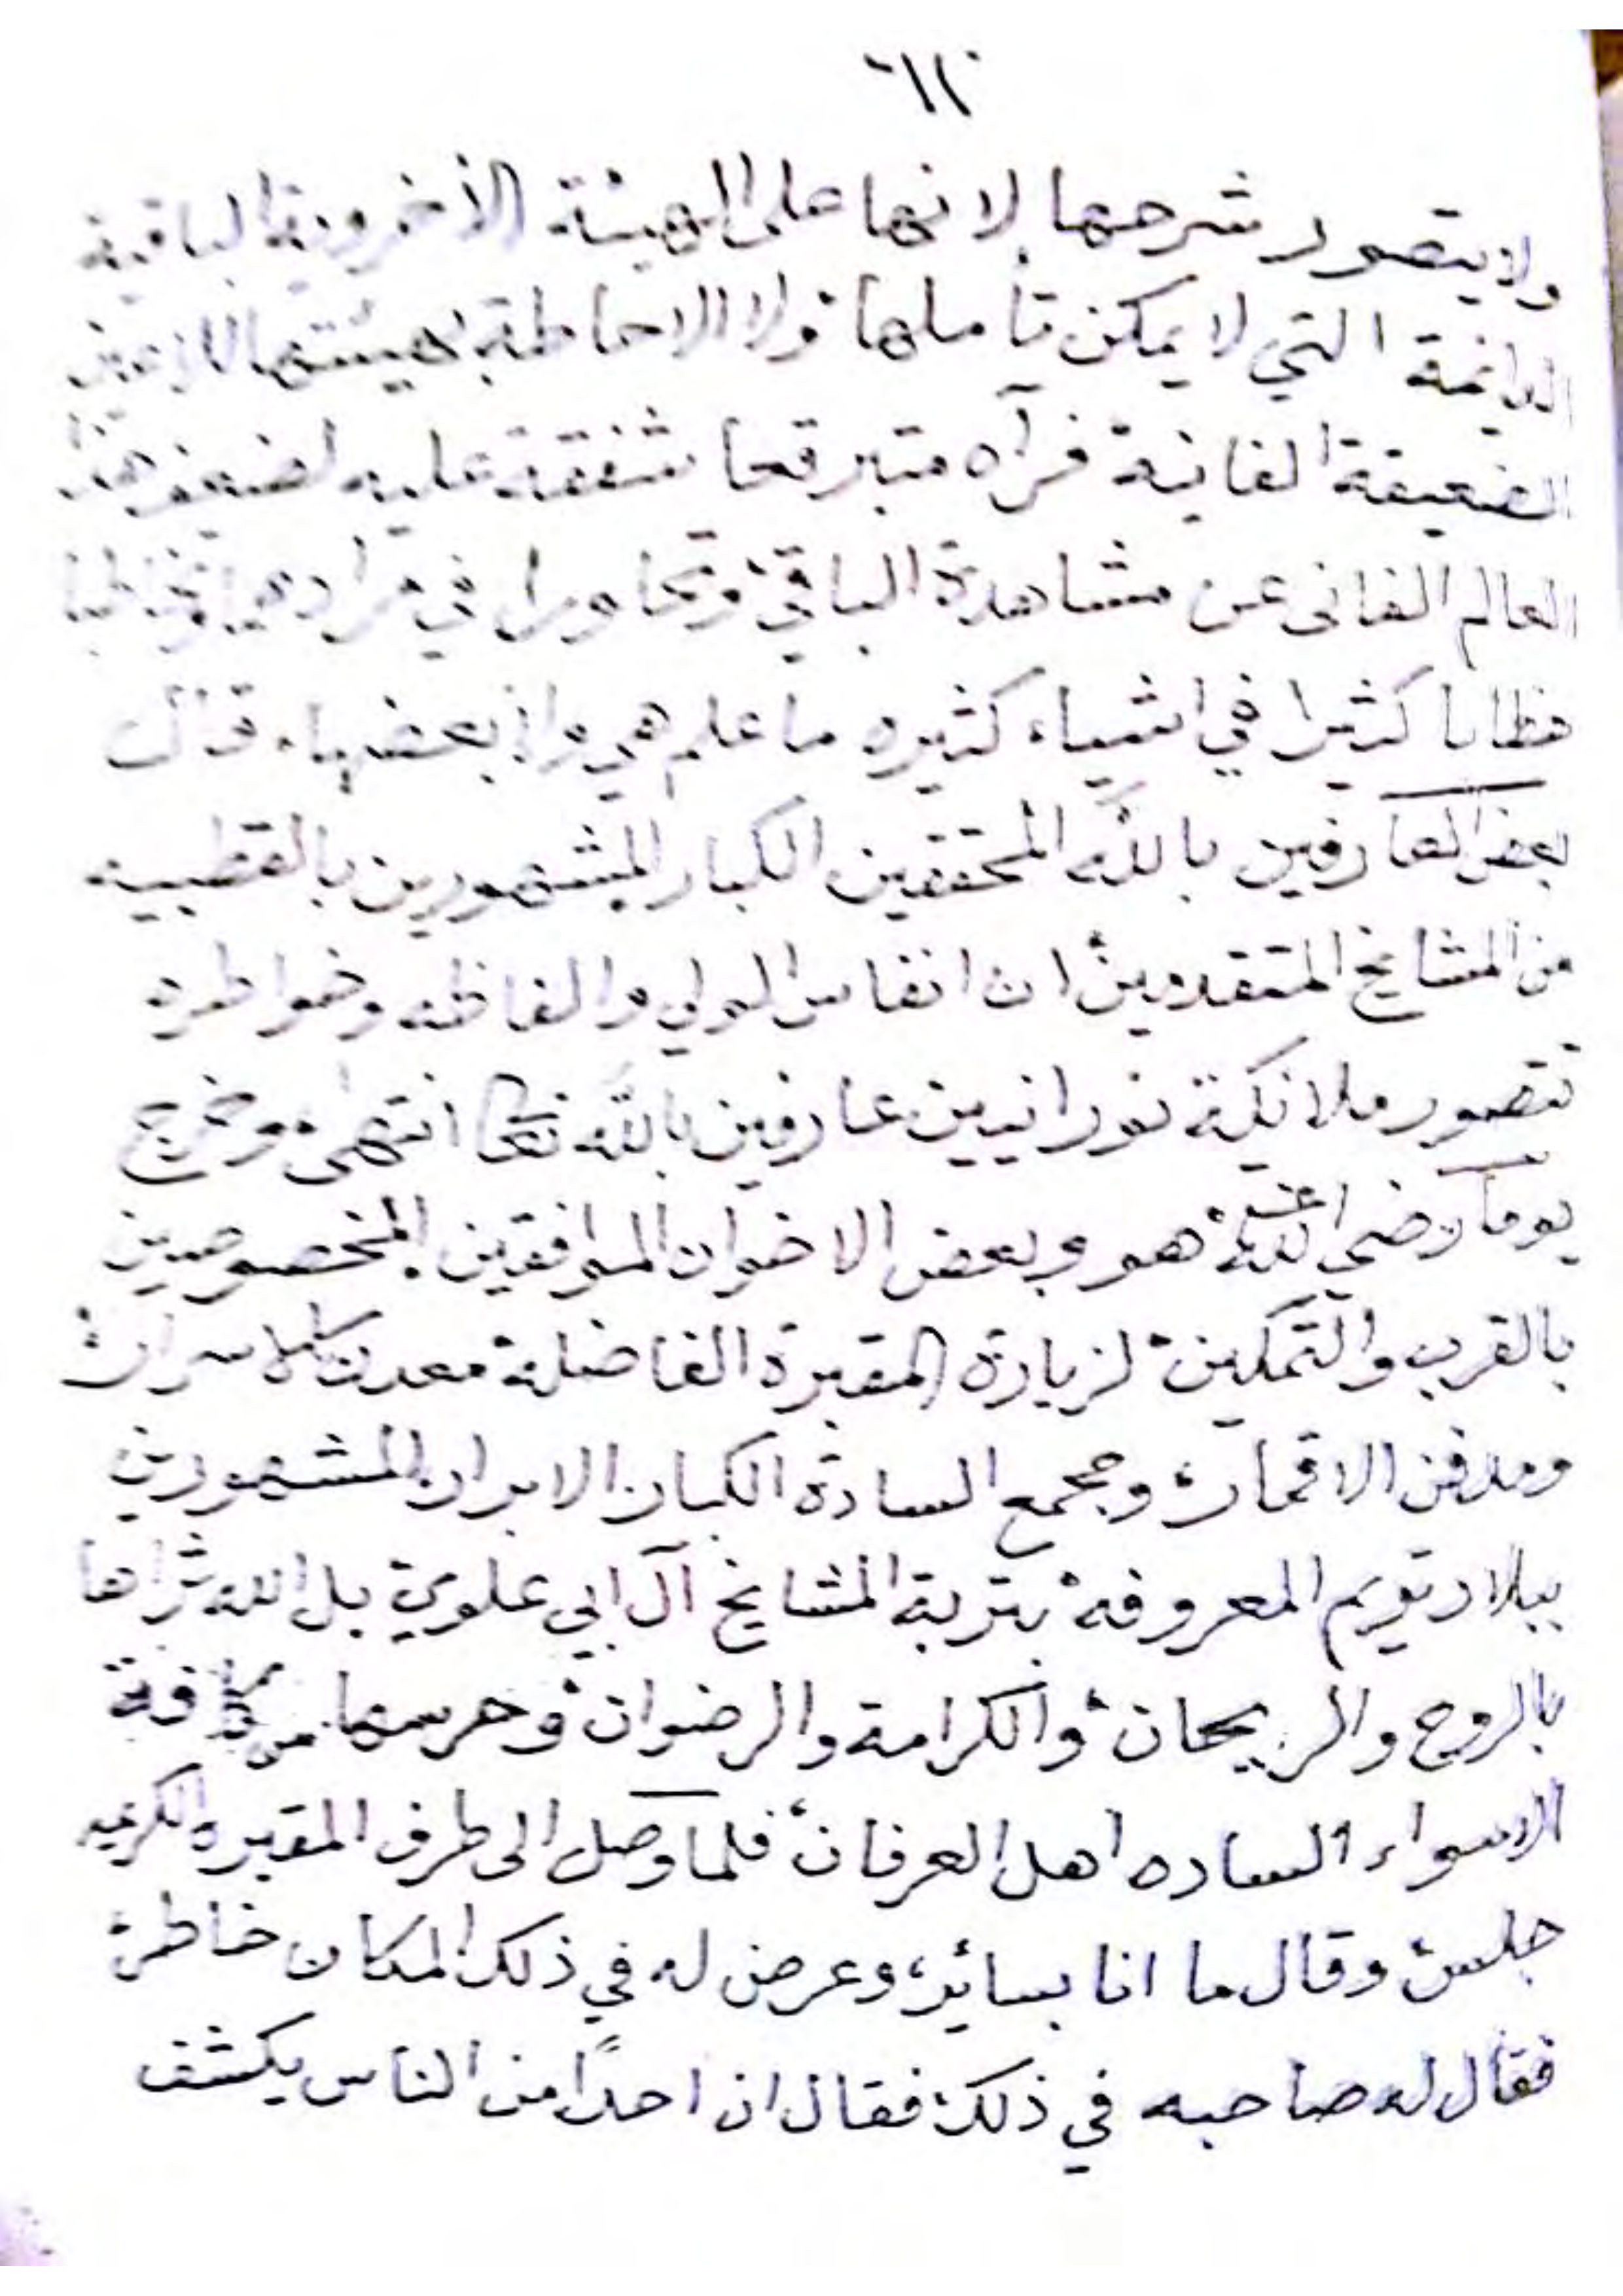 ولا يتصور شرحها لانها على الهيئة الأخروية الباقية
الدائمة التي لا يمكن تأملها ولا الاحاطة بهيئتها
الضعيفة الفانية فرآه متبرقعا شفقة عليه لضعف هذا
العالم الفانى عن مشاهدة الباقي وتحاورا في
خطابا كثيرا في اشياء كثيره ما علم هي بعضها، قال
بعض العارفين بالله المحققين الكبار المشهورين بالقطبيه
من المشايخ المتقدمين ان انفاس الولي والفاظه وخواطره
تتصور ملائكة نورانيين عارفين بالله تعا انتهى، وخرج
يوما رضي الله عنه هو وبعض الاخوان الموافقين المخصوصين
بالقرب والتمكين لزيارة المقبرة الفاضلة معدن الاسرار
ومدفن الاقمار، ومجمع السادة الكبار الابرار المشهورين
ببلاد تريم المعروفة بتربة المشايخ آل ابي علوي بل الله ثراها
بالروح والريحان والكرامة والرضوان وحرسها من كافة
الاسواء السادة اهل العرفان، فلما وصل الى طرف المقبره الكريمه
جلس وقال ما انا بسائر، وعرض له في ذلك المكان خاطر
فقال له صاحبه في ذلك فقال ان احدًا من الناس يكشف